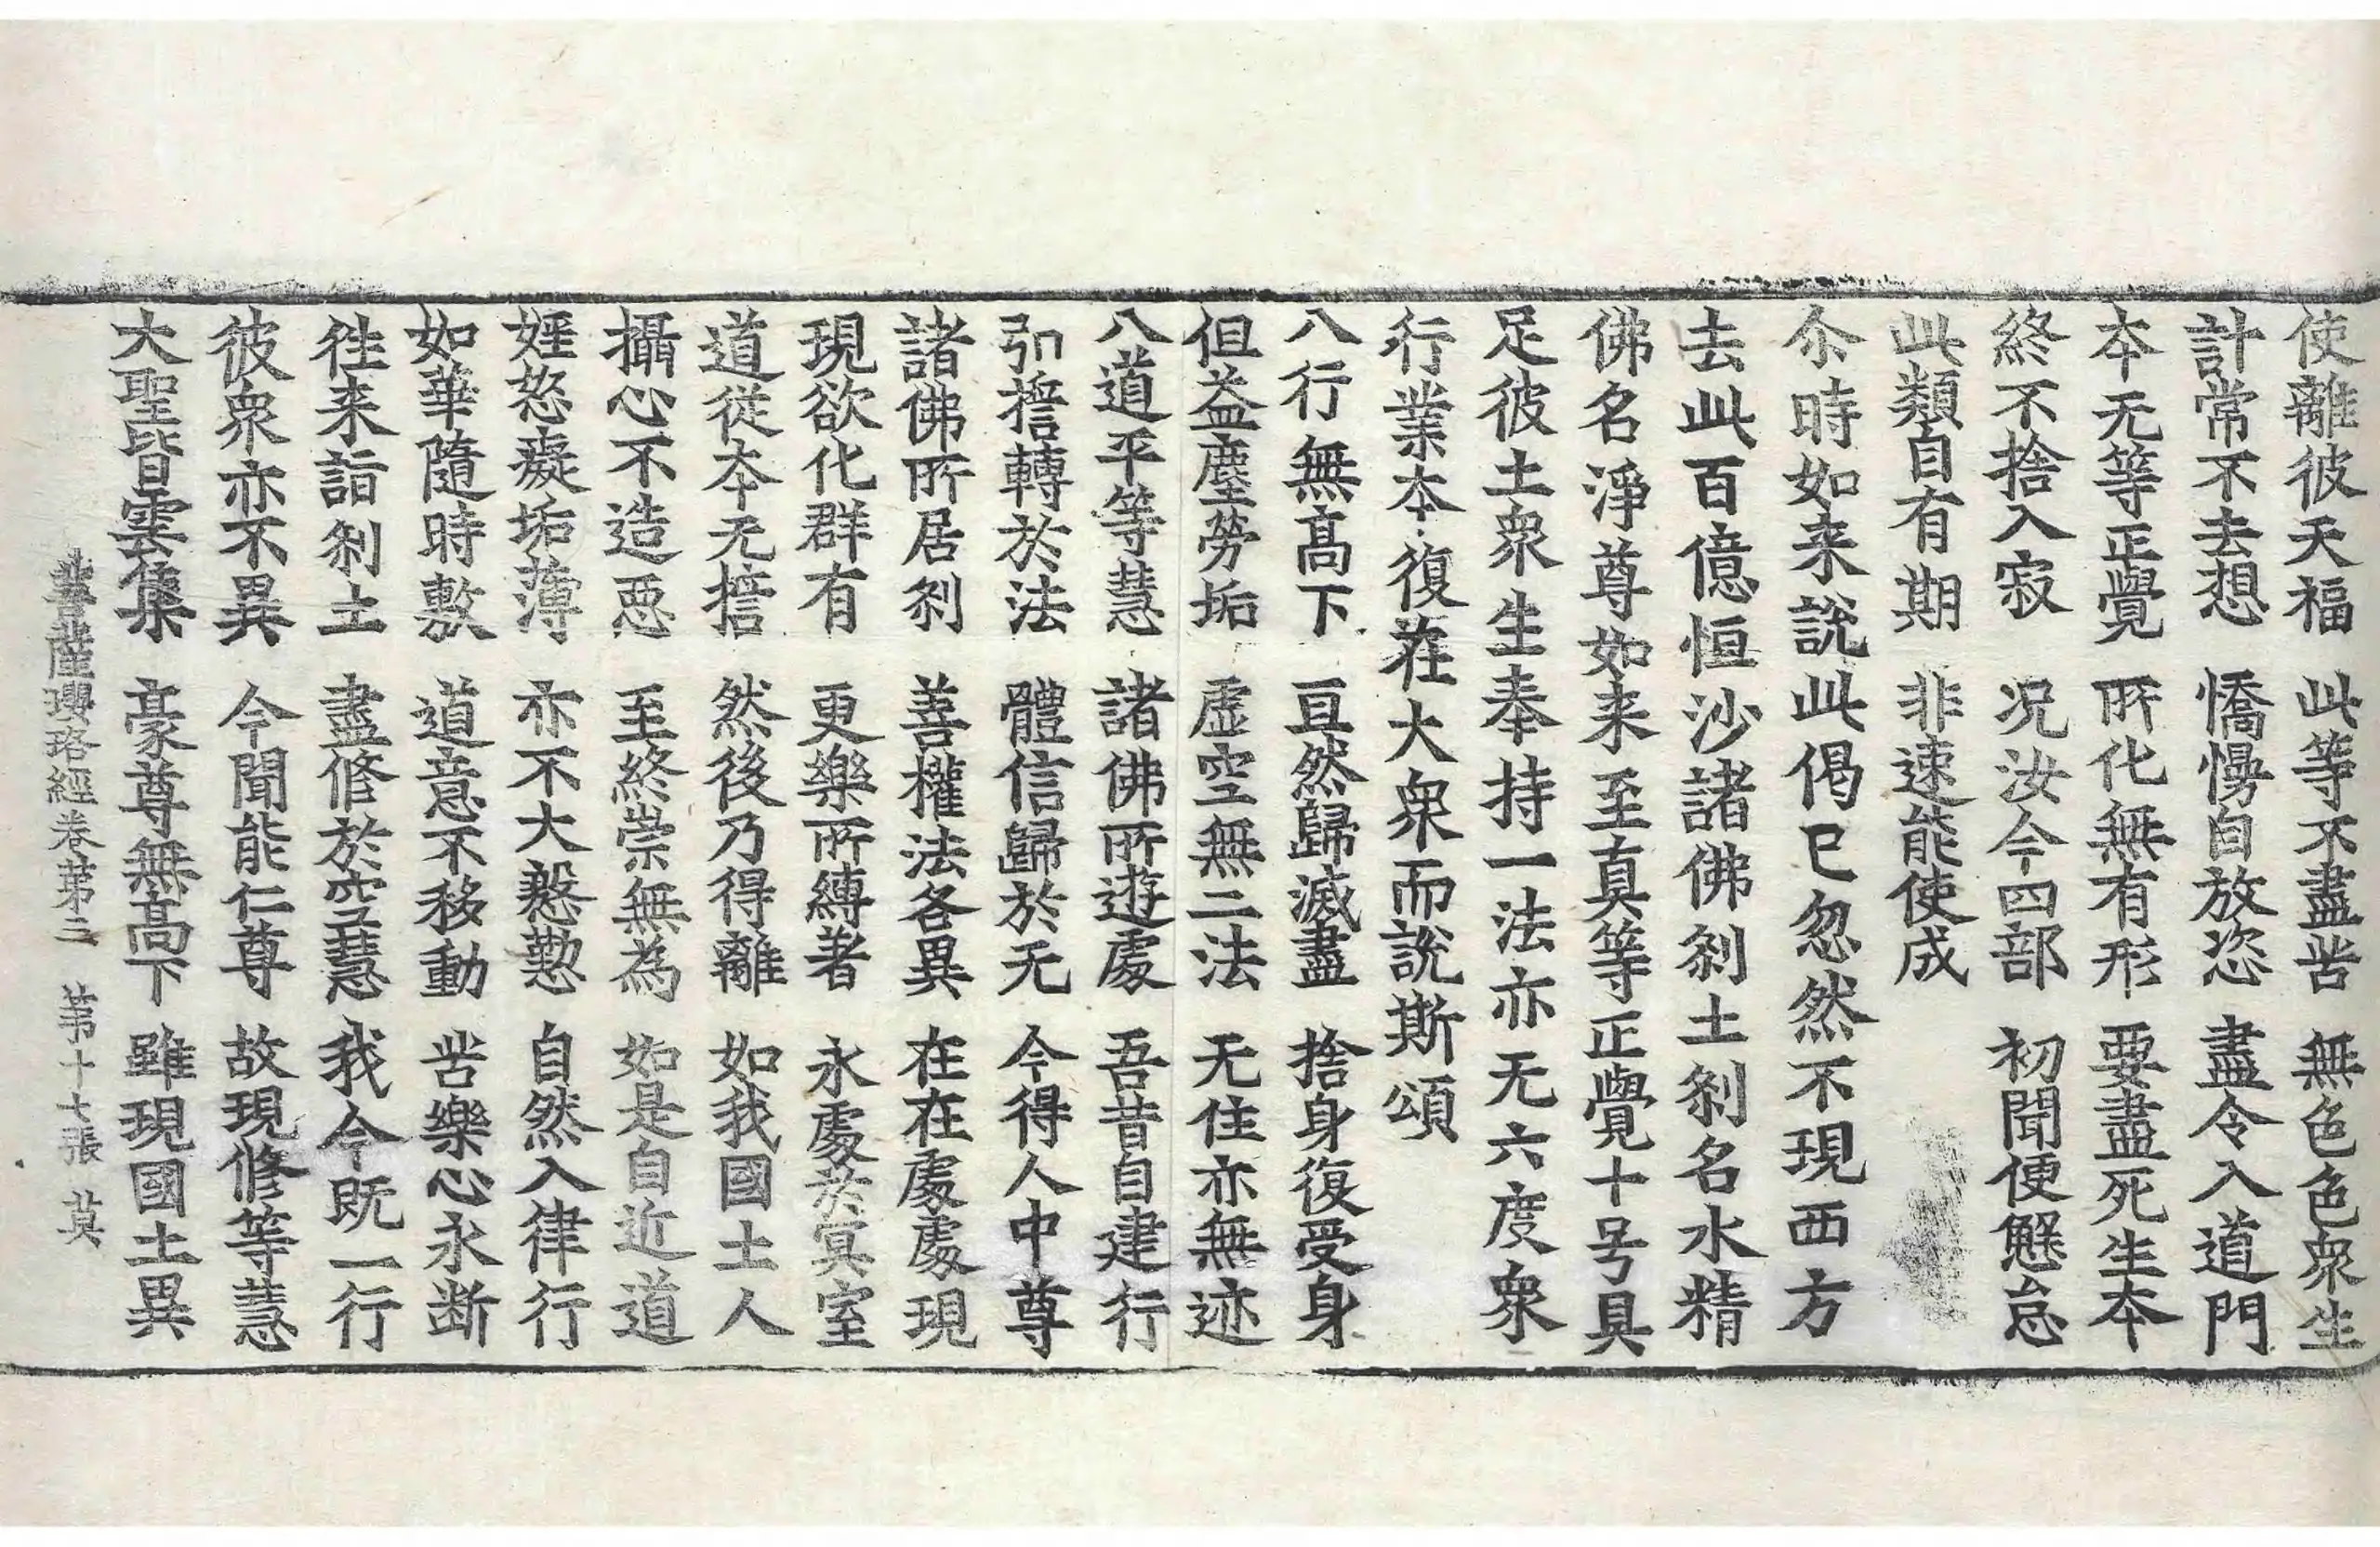 使離彼天福　此等不盡苦　無色色衆生
計常不去想　憍慢自放恣　盡令入道門
夲无等正覺　所化無有形　要盡死生夲
終不捨入寂　况汝今四部　初聞便懈怠
此類自有期　非速能使成
尒時如来說此偈已忽然不現西方
去此百億恒沙諸佛刹土刹名水精
佛名淨尊如来至真等正覺十号具
足彼土衆生奉持一法亦无六度衆
行業夲復在大衆而說斯頌
八行無髙下　亘然歸滅盡　捨身復受身
但益塵勞垢　虛空無二法　无住亦無迹
八道平等慧　諸佛所遊處　吾昔自建行
引擔轉於法　體信歸於无　今得人中尊
諸佛所居刹　善權法各異　在在處處現
現欲化群有　更樂所縛者　永處於冥室
道從夲无擔　然後乃得離　如我國土人
攝心不造惡　至終崇無為　如是自近道
婬怒癡垢薄　亦不大慇懃　自然入律行
如華隨時敷　道意不移動　苦樂心永断
徃来詣刹土　盡修於空慧　我今既一行
彼衆亦不異　今聞能仁尊　故現修等慧
大聖皆雲集　豪尊無髙下　雖現國土異
菩薩瓔珞經卷第三　第十七張　莫